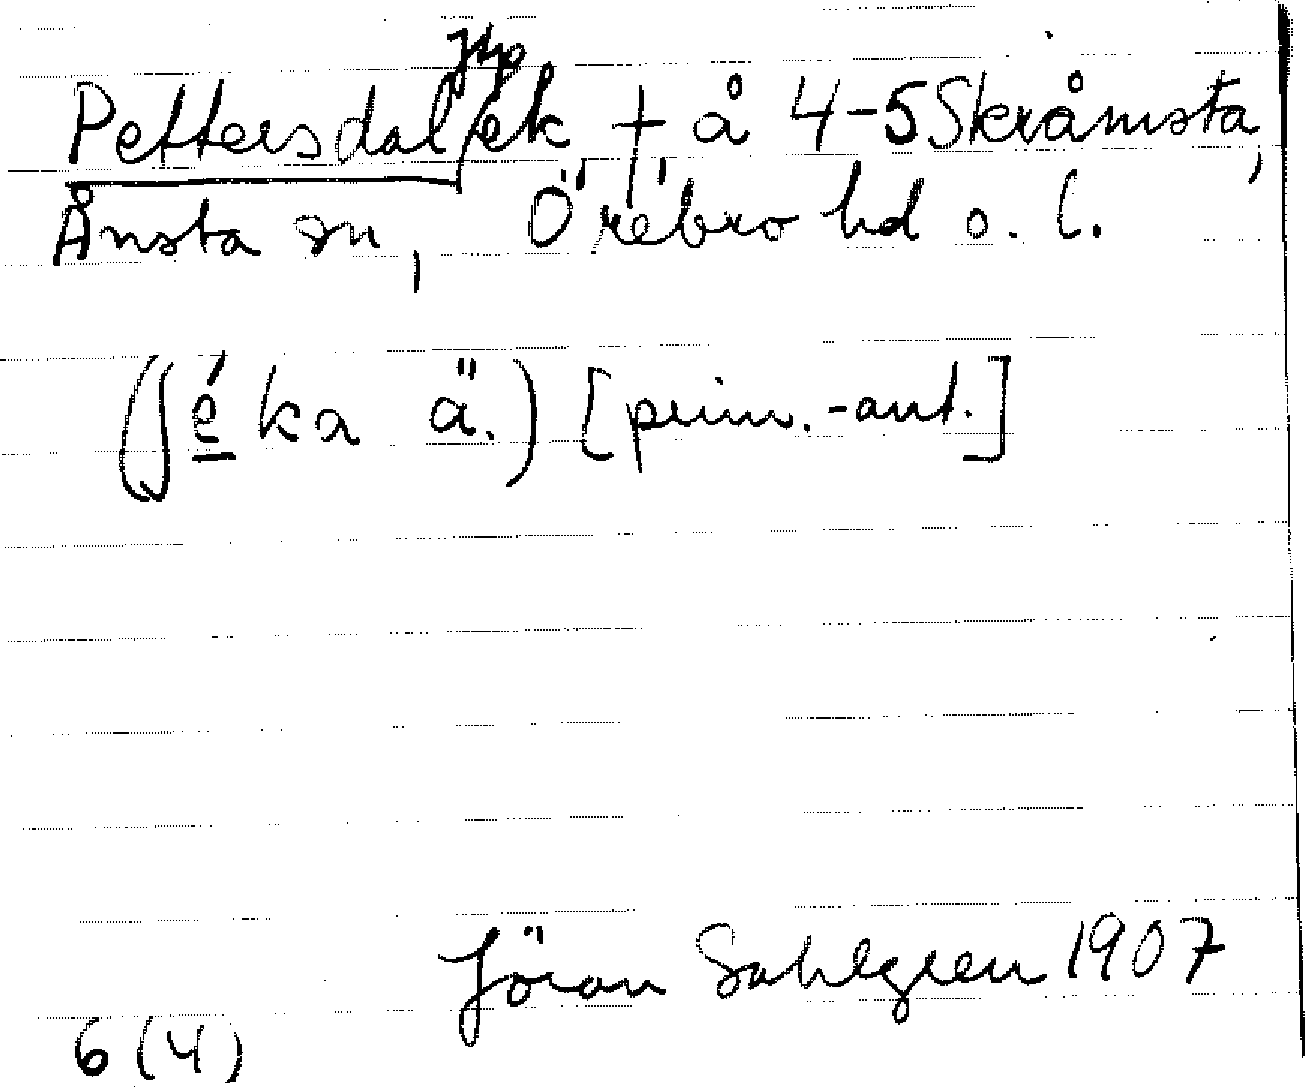 Jtp
Pettersdal, ek † å 4-5 Skråmsta,
Ånsta sn, Örebro hd o. l.
(jéka ä.) [prim.-ant.]
Jöran Sahlgren 1907
6 (4)